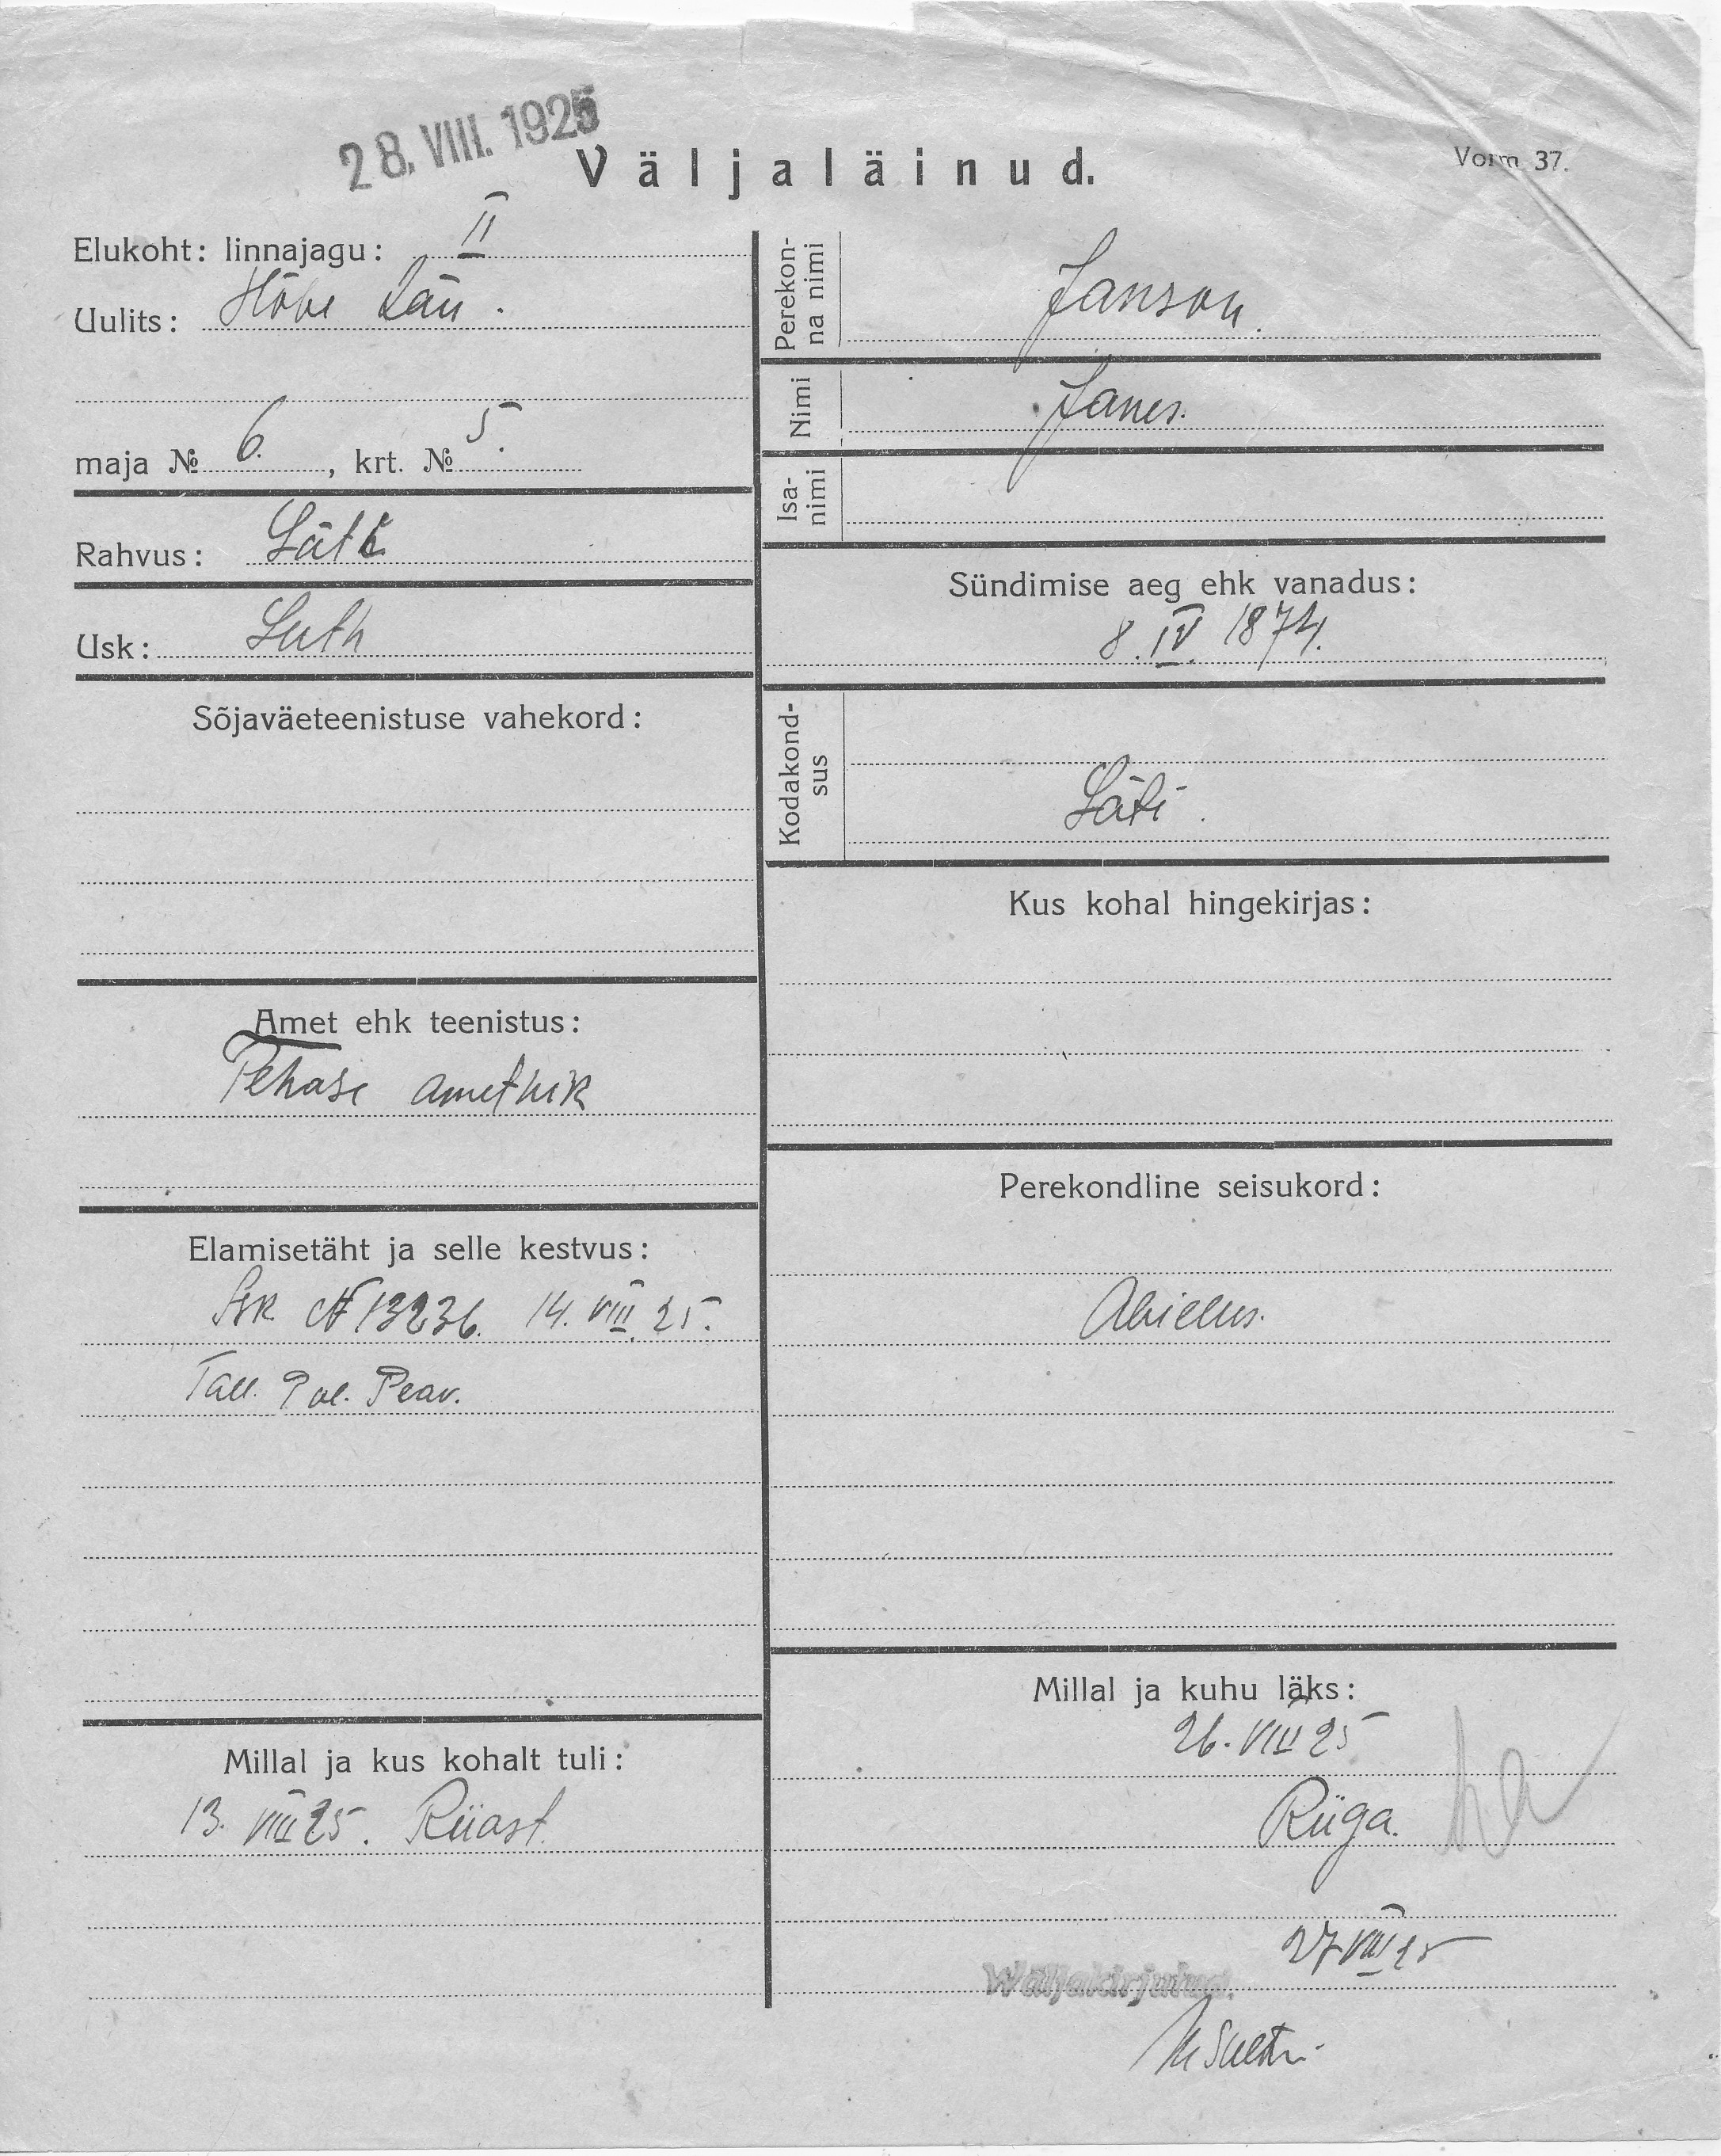 28. VIII. 1925
Väljaläinud.
Vorm 37.
Elukoht: linnajagu: II
Uulits: Hõbe tän.
maja № 6. , krt. № 5.
Rahvus: Läti
Usk: Luth
Sõjaväeteenistuse vahekord:
Amet ehk teenistus:
Tehase ametnik
Elamisetäht ja selle kestvus:
N 13236. 14. VIII. 25.
Tall. Pol. Peav.
Millal ja kus kohalt tuli:
13. VIII 25. Riiast.
Perekon-
na nimi
Janson.
Nimi
Janes.
Isa-
nimi
Sündimise aeg ehk vanadus:
8. IV. 1874.
Kodakond-
sus
Läti.
Kus kohal hingekirjas:
Perekondline seisukord:
Abielus.
Millal ja kuhu läks:
26. VIII 25
Riiga.
27 VIII 25
Wäljakirjutud.